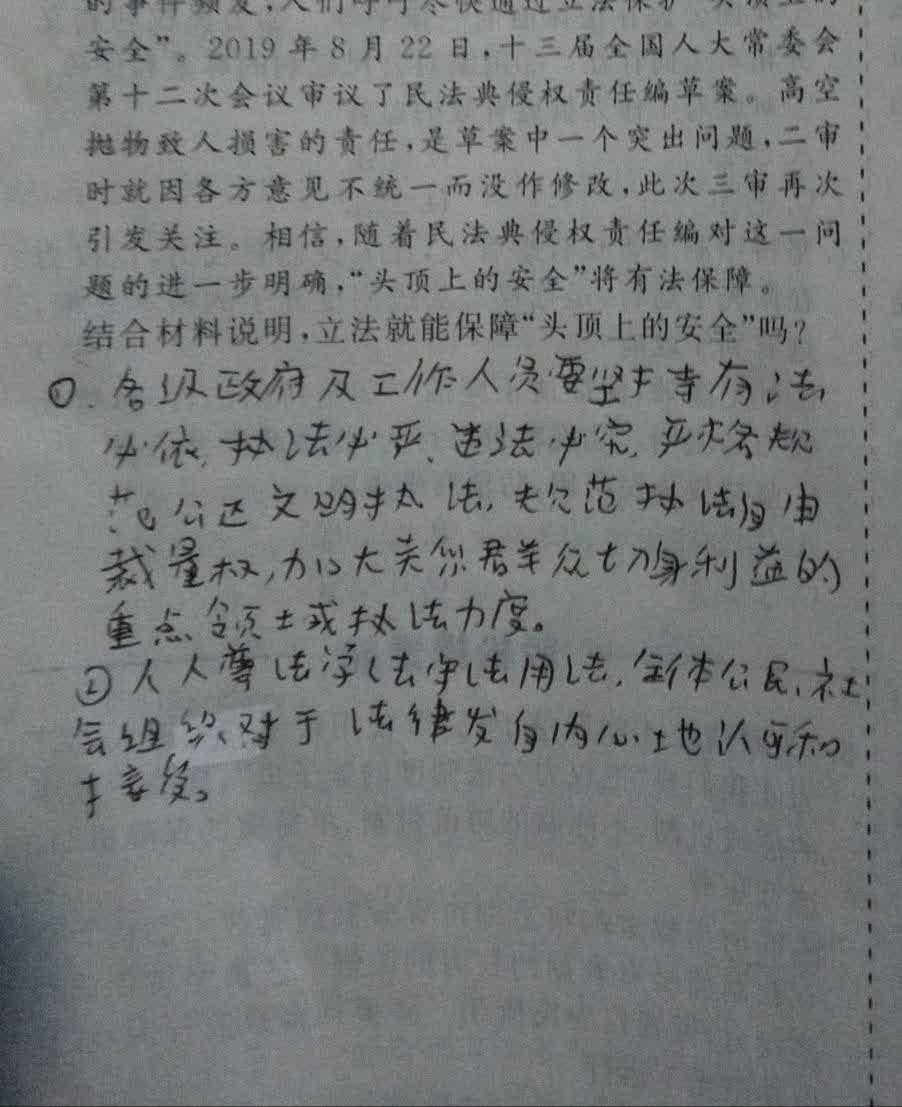 的事件频发,人们呼吁尽快通过立法保护“头顶上的
安全”。2019年8月22日,十三届全国人大常委会
第十二次会议审议了民法典侵权责任编草案。高空
抛物致人损害的责任,是草案中一个突出问题,二审
时就因各方意见不统一而没作修改,此次三审再次
引发关注。相信,随着民法典侵权责任编对这一问
题的进一步明确,“头顶上的安全”将有法保障。
结合材料说明,立法就能保障“头顶上的安全”吗?
①.各级政府及工作人员要坚持有法
必依,执法必严、违法必究,严格规
范公正文明执法,规范执法自由
裁量权,加大关系群众切身利益的
重点领域执法力度。
②人人尊法学法守法用法,全体公民、社
会组织对于法律发自内心地认可和
接受。